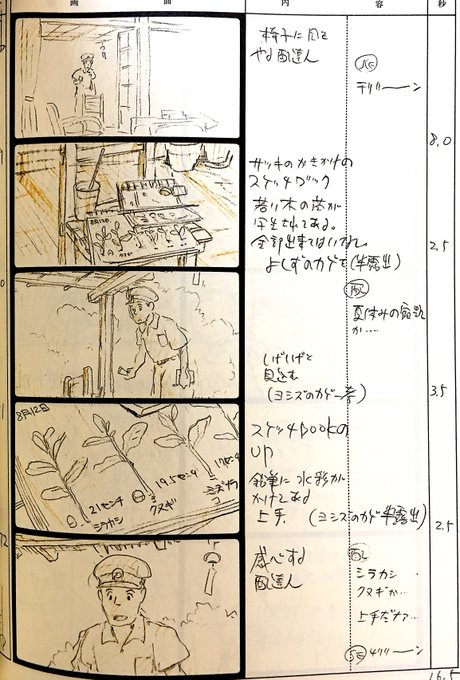 画面
内容
秒
椅子に目を
やる配達人
SE
チリーーン
8.0
サツキのかきかけの
スケッチブック
若い木の苗が
写生されてある。
全部出来てはいない。
よしずのカゲも(半露出)
2.5
配
夏休みの宿題
か‥‥
しげしげと
見込む
(ヨシズのカゲ
3.5
8月12日
21センチ
シラカシ
19.5センチ
クヌギ
スケッチbookの
UP
鉛筆に水彩が
かけてある
上手.
(ヨシズのカゲ半露出)
2.5
感心する
配達人
シラカシ
クヌギか‥
上手だナァ‥
SE チリーーン
16.5